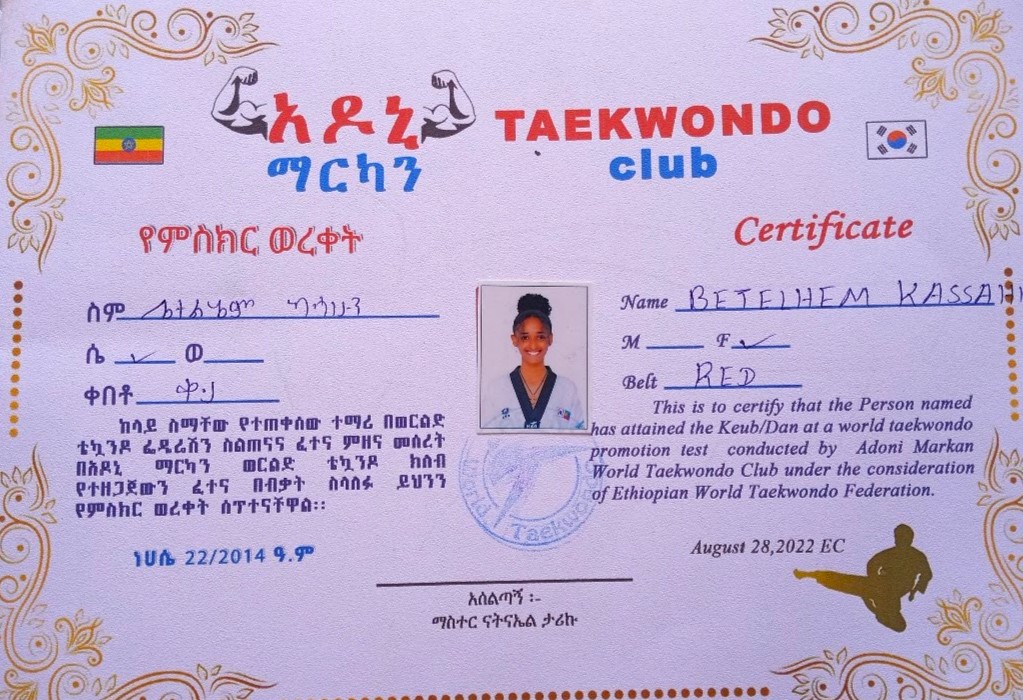 አዶኒ TAEKWONDO
ማርካን club
የምስክር ወረቀት Certificate
ስም ቤተልሄም ካሳሁን
Name BETELHEM KASSAH
ሴ ✓ ወ
M F ✓
ቀበቶ ቀይ
Belt RED
ከላይ ስማቸው የተጠቀሰው ተማሪ በወርልድ
ቴኳንዶ ፌዴሬሽን ስልጠናና ፈተና ምዘና መሰረት
በአዶኒ ማርካን ወርልድ ቴኳንዶ ክለብ
የተዘጋጀውን ፈተና በብቃት ስላለፉ ይህንን
የምስክር ወረቀት ሰጥተናቸዋል፡፡
This is to certify that the Person named
has attained the Keub/Dan at a world taekwondo
promotion test conducted by Adoni Markan
World Taekwondo Club under the consideration
of Ethiopian World Taekwondo Federation.
World Taekwondo
ነሀሴ 22/2014 ዓ.ም
August 28,2022 EC
አሰልጣኝ ፡-
ማስተር ናትናኤል ታሪኩ